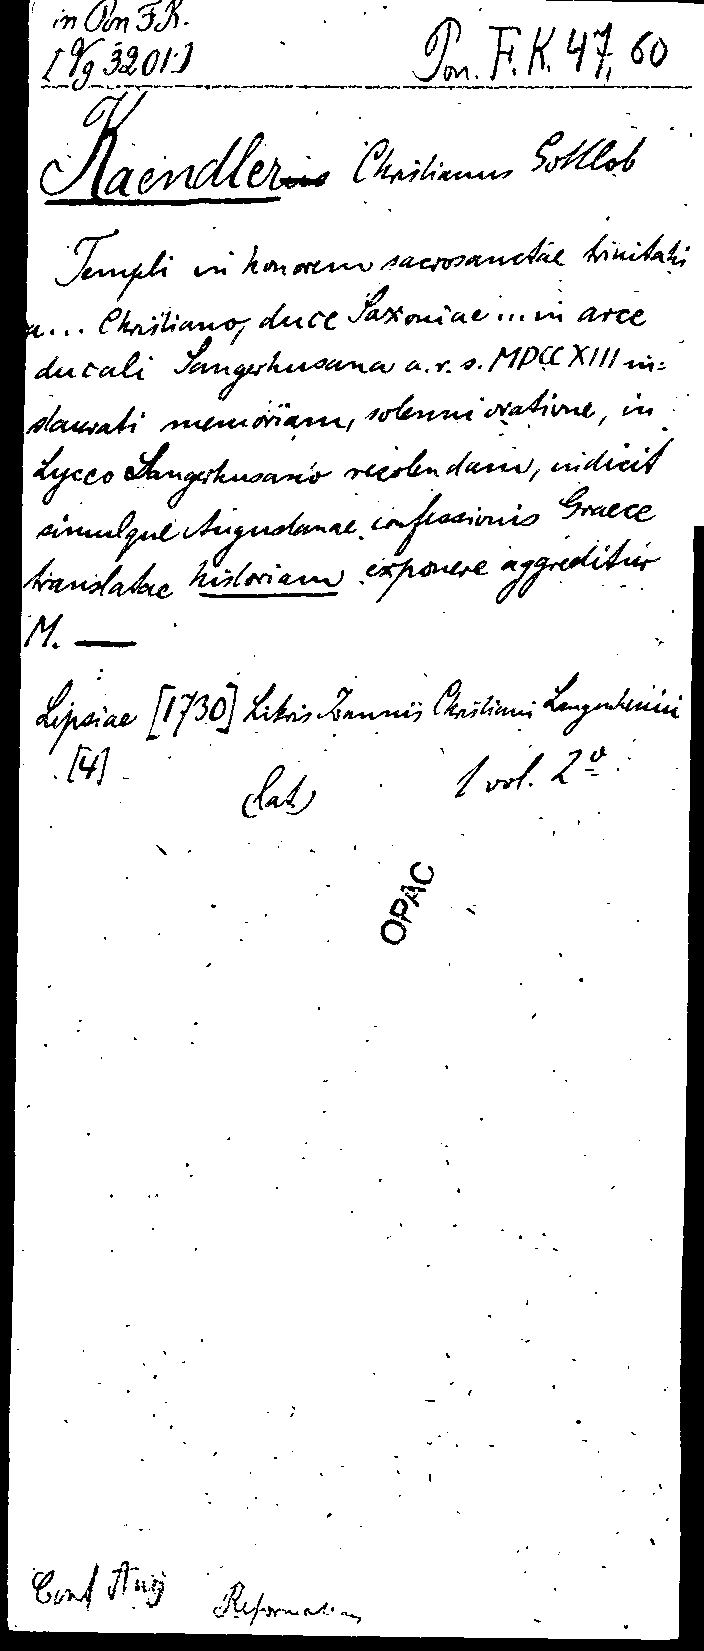 in Pon F.K.
[Vg 3201:]
Pon. F. K. 47, 60
Kaendlerius Christianus Gottlob
Templi in honorem sacrosanctae trinitatis
a... Christiano, duce Saxoniae ... in arce
ducali Sangerhusana a. r. s. MDCCXIII in=
staurati memoriam, solemni oratione, in
Lyceo Sangerhusano recolendam, indicit
simulque Augustanae confessionis Graece
translatae historiam exponere aggreditur
M. —
Lipsiae [1730] Literis Ioannis Christiani Langenhemii
[4]
(lat) 1 vol. 2º
OPAC
Conf Aug
Reformation